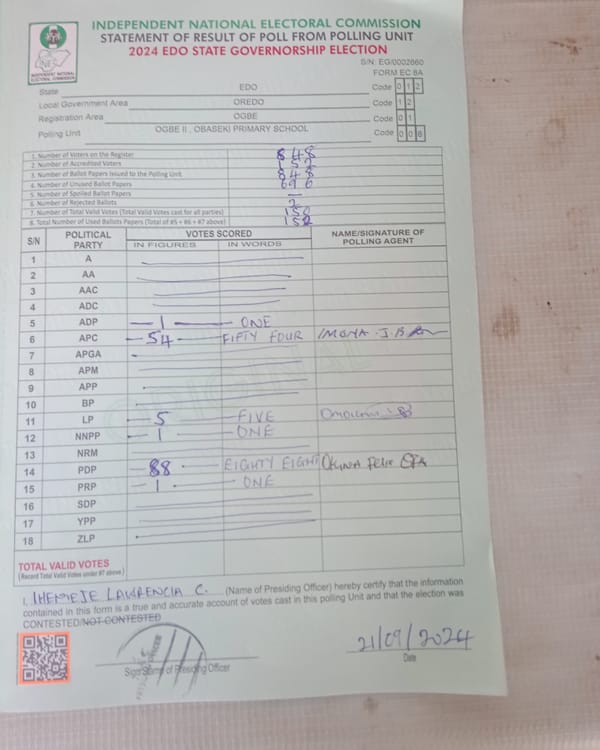 INDEPENDENT NATIONAL ELECTORAL COMMISSION
STATEMENT OF RESULT OF POLL FROM POLLING UNIT
2024 EDO STATE GOVERNORSHIP ELECTION
INDEPENDENT NATIONAL ELECTORAL COMMISSION
S/N: EG/0002660
FORM EC 8A
State EDO Code 0 1 2
Local Government Area OREDO Code 1 2
Registration Area OGBE Code 0 1
Polling Unit OGBE II , OBASEKI PRIMARY SCHOOL Code 0 0 8
1. Number of Voters on the Register 848
2. Number of Accredited Voters 152
3. Number of Ballot Papers Issued to the Polling Unit 848
4. Number of Unused Ballot Papers 696
5. Number of Spoiled Ballot Papers —
6. Number of Rejected Ballots 2
7. Number of Total Valid Votes (Total Valid Votes cast for all parties) 150
8. Total Number of Used Ballots Papers (Total of #5 + #6 + #7 above) 152
S/N POLITICAL PARTY VOTES SCORED NAME/SIGNATURE OF POLLING AGENT
IN FIGURES IN WORDS
1 A
2 AA
3 AAC
4 ADC
5 ADP 1 ONE
6 APC 54 FIFTY FOUR J.B
7 APGA
8 APM
9 APP
10 BP
11 LP 5 FIVE
12 NNPP 1 ONE
13 NRM
14 PDP 88 EIGHTY EIGHT Felix
15 PRP 1 ONE
16 SDP
17 YPP
18 ZLP
TOTAL VALID VOTES
(Record Total Valid Votes under #7 above)
I, IHEMEJE LAWRENCIA C. (Name of Presiding Officer) hereby certify that the information
contained in this form is a true and accurate account of votes cast in this polling Unit and that the election was
CONTESTED/NOT CONTESTED
21/09/2024
Signature of Presiding Officer Date